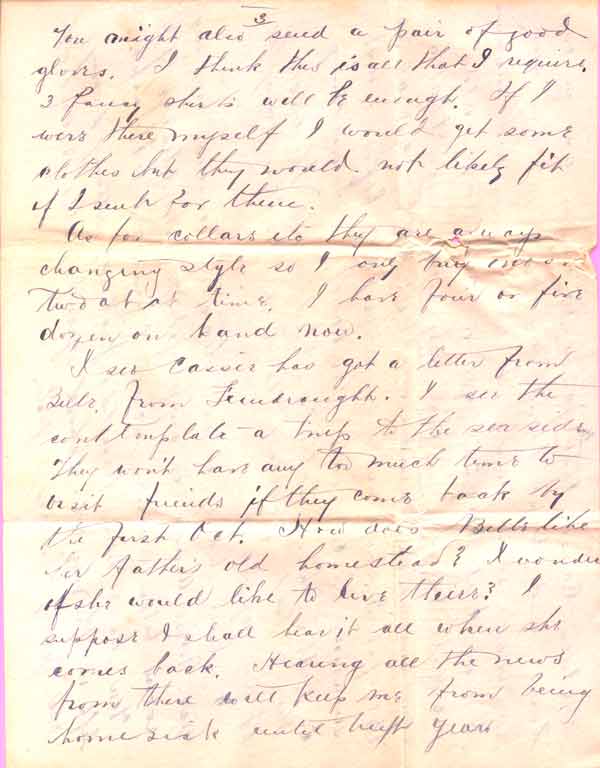 3
You might also send a pair of good
gloves. I think this is all that I require.
3 fancy shirts will be enough. If I
were there myself I would get some
clothes but they would not likely fit
if I sent for them.
As for collars etc they are always
changing style so I only buy one or
two at a time. I have four or five
dozen on hand now.
I see Cassie has got a letter from
Belle, from I see the
contemplate a trip to the sea side.
They won't have any too much time to
visit friends if they come back by
the first Oct. How does Belle like
her father's old homestead? I wonder
if she would like to live there? I
suppose I shall hear it all when she
comes back. Hearing all the news
from there will keep me from being
home sick until next year